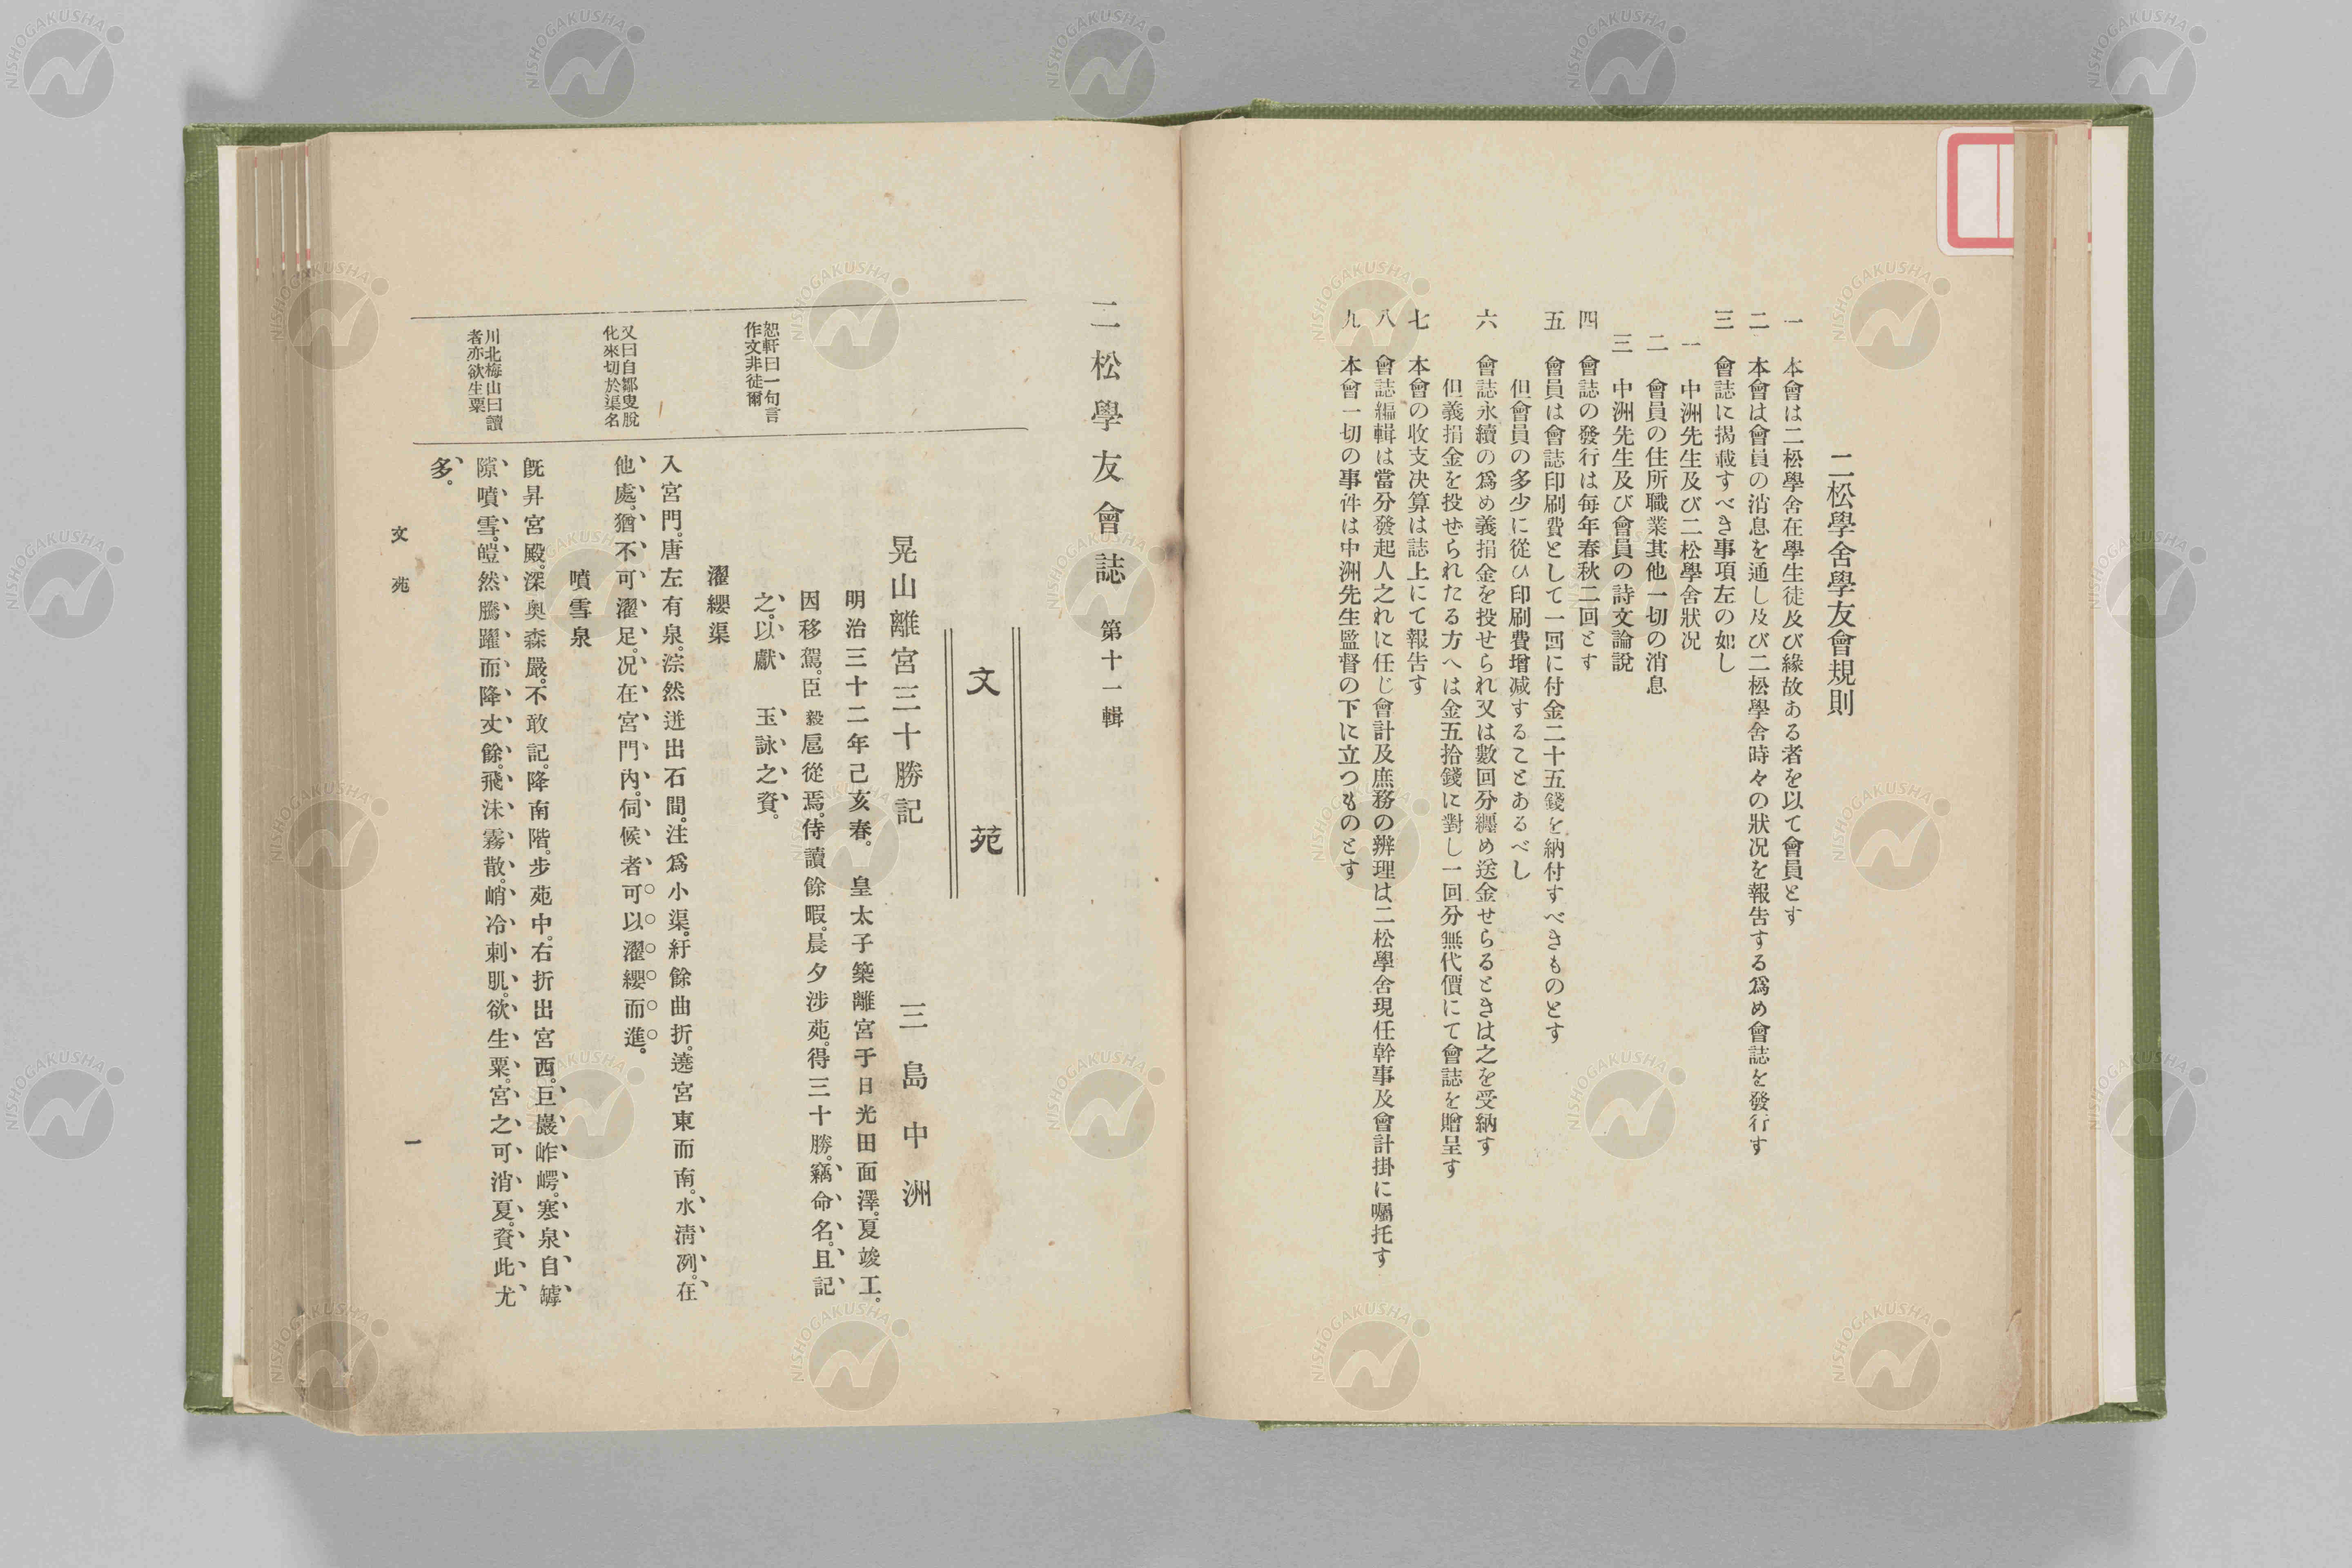 二松學舍學友會規則
一 本會は二松學舍在學生徒及び緣故ある者を以て會員とす
二 本會は會員の消息を通し及び二松學舍時々の狀況を報告する爲め會誌を發行す
三 會誌に揭載すべき事項左の如し
一 中洲先生及び二松學舍狀況
二 會員の住所職業其他一切の消息
三 中洲先生及び會員の詩文論說
四 會誌の發行は每年春秋二回とす
五 會員は會誌印刷費として一回に付金二十五錢を納付すべきものとす
但會員の多少に從ひ印刷費增減することあるべし
六 會誌永續の爲め義捐金を投せられ又は數回分纒め送金せらるときは之を受納す
但義捐金を投せられたる方へは金五拾錢に對し一回分無代價にて會誌を贈呈す
七 本會の收支决算は誌上にて報告す
八 會誌編輯は當分發起人之れに任じ會計及庶務の辨理は二松學舍現任幹事及會計掛に囑托す
九 本會一切の事件は中洲先生監督の下に立つものとす
二松學友會誌 第十一輯
文苑
晃山離宮三十勝記 三島中洲
明治三十二年己亥春。 皇太子築離宮于日光田面澤。夏竣工。
因移駕。臣毅扈從焉。侍讀餘暇。晨夕涉苑。得三十勝。竊命名。且記
之。以獻 玉詠之資。
恕軒曰一句言
作文非徒爾
濯纓渠
入宮門。唐左有泉。淙然迸出石間。注爲小渠。紆餘曲折。遶宮東而南。水淸冽。在
他處。猶不可濯足。况在宮門內。伺候者可以濯纓而進。
又曰自鄒叟脫
化來切於渠名
噴雪泉
旣昇宮殿。深奧森嚴。不敢記。降南階。步苑中。右折出宮西。巨巖岞崿。寒泉自罅
隙噴雪。皚然騰躍而降丈餘。飛沫霧散。峭冷刺肌。欲生粟。宮之可消夏。資此尤
多。
川北梅山曰讀
者亦欲生粟
文苑
一
NISHOGAKUSHA